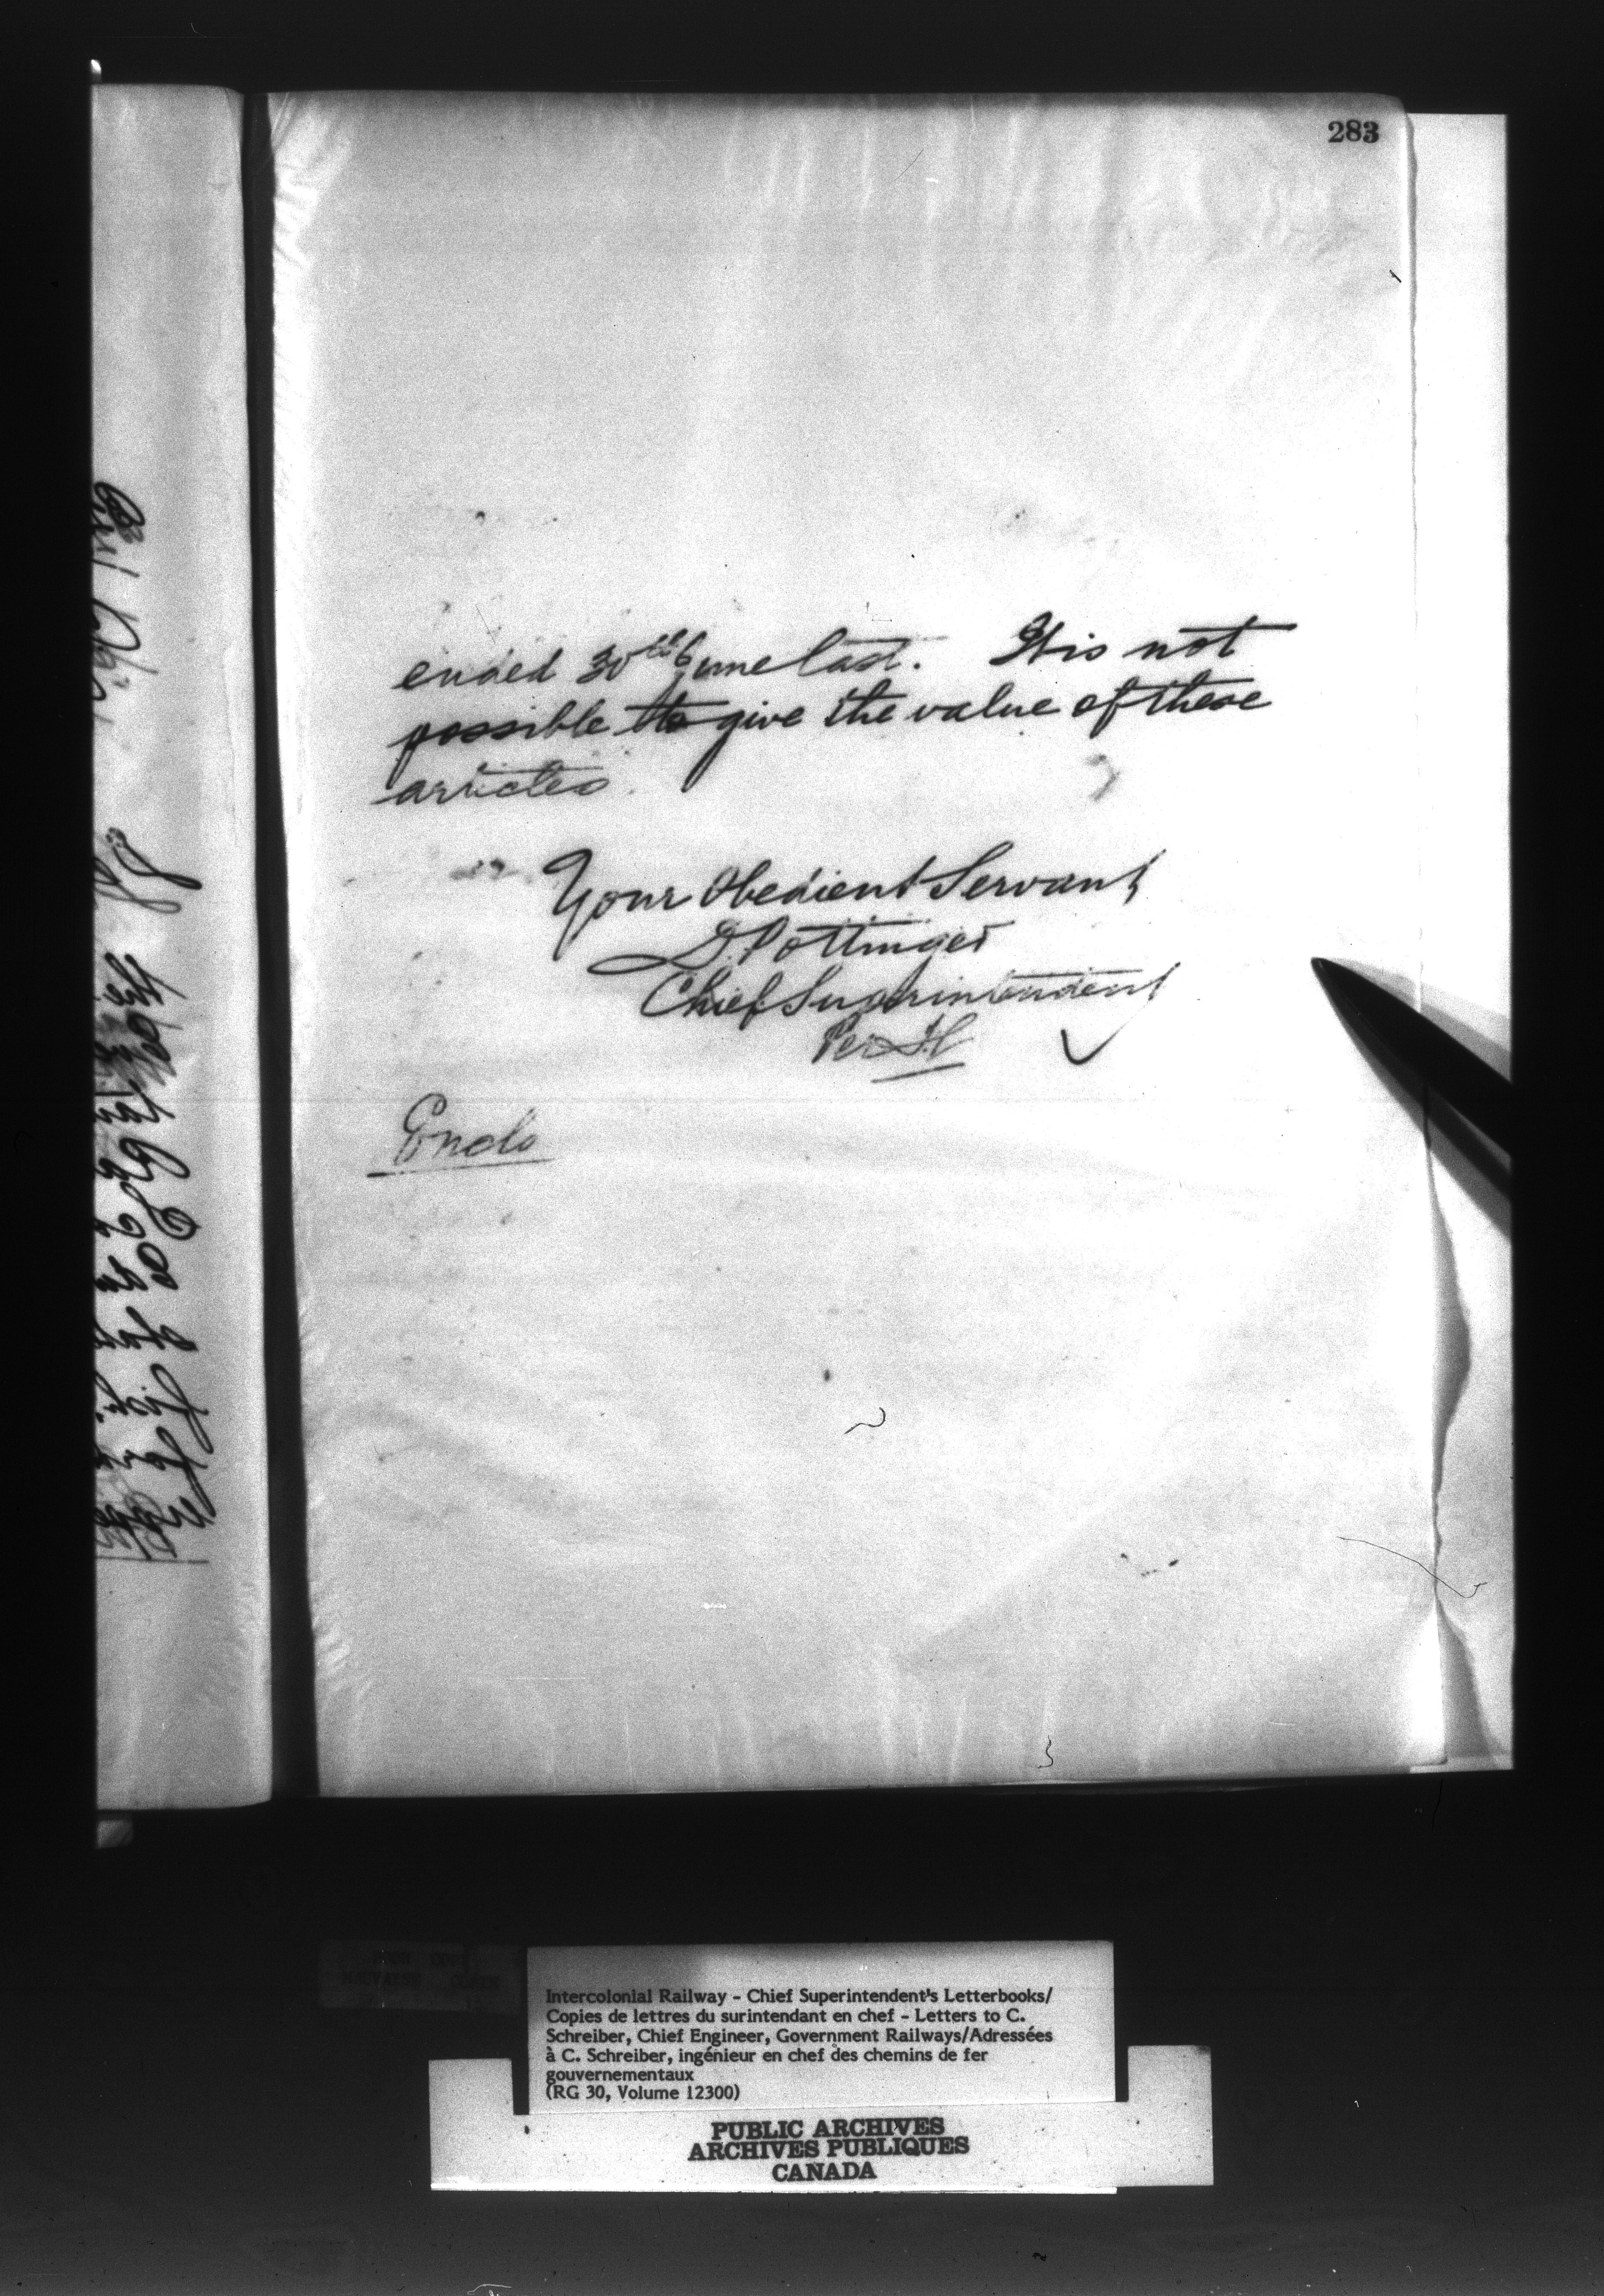 283
ended 30th June last. It is not
possible to give the value of these
articles.
Your Obedient Servant
D. Pottinger
Chief Superintendent
Per
Encls
Intercolonial Railway – Chief Superintendent's Letterbooks/
Copies de lettres du surintendant en chef – Letters to C.
Schreiber, Chief Engineer, Government Railways/Adressées
à C. Schreiber, ingénieur en chef des chemins de fer
gouvernementaux
(RG 30, Volume 12300)
PUBLIC ARCHIVES
ARCHIVES PUBLIQUES
CANADA